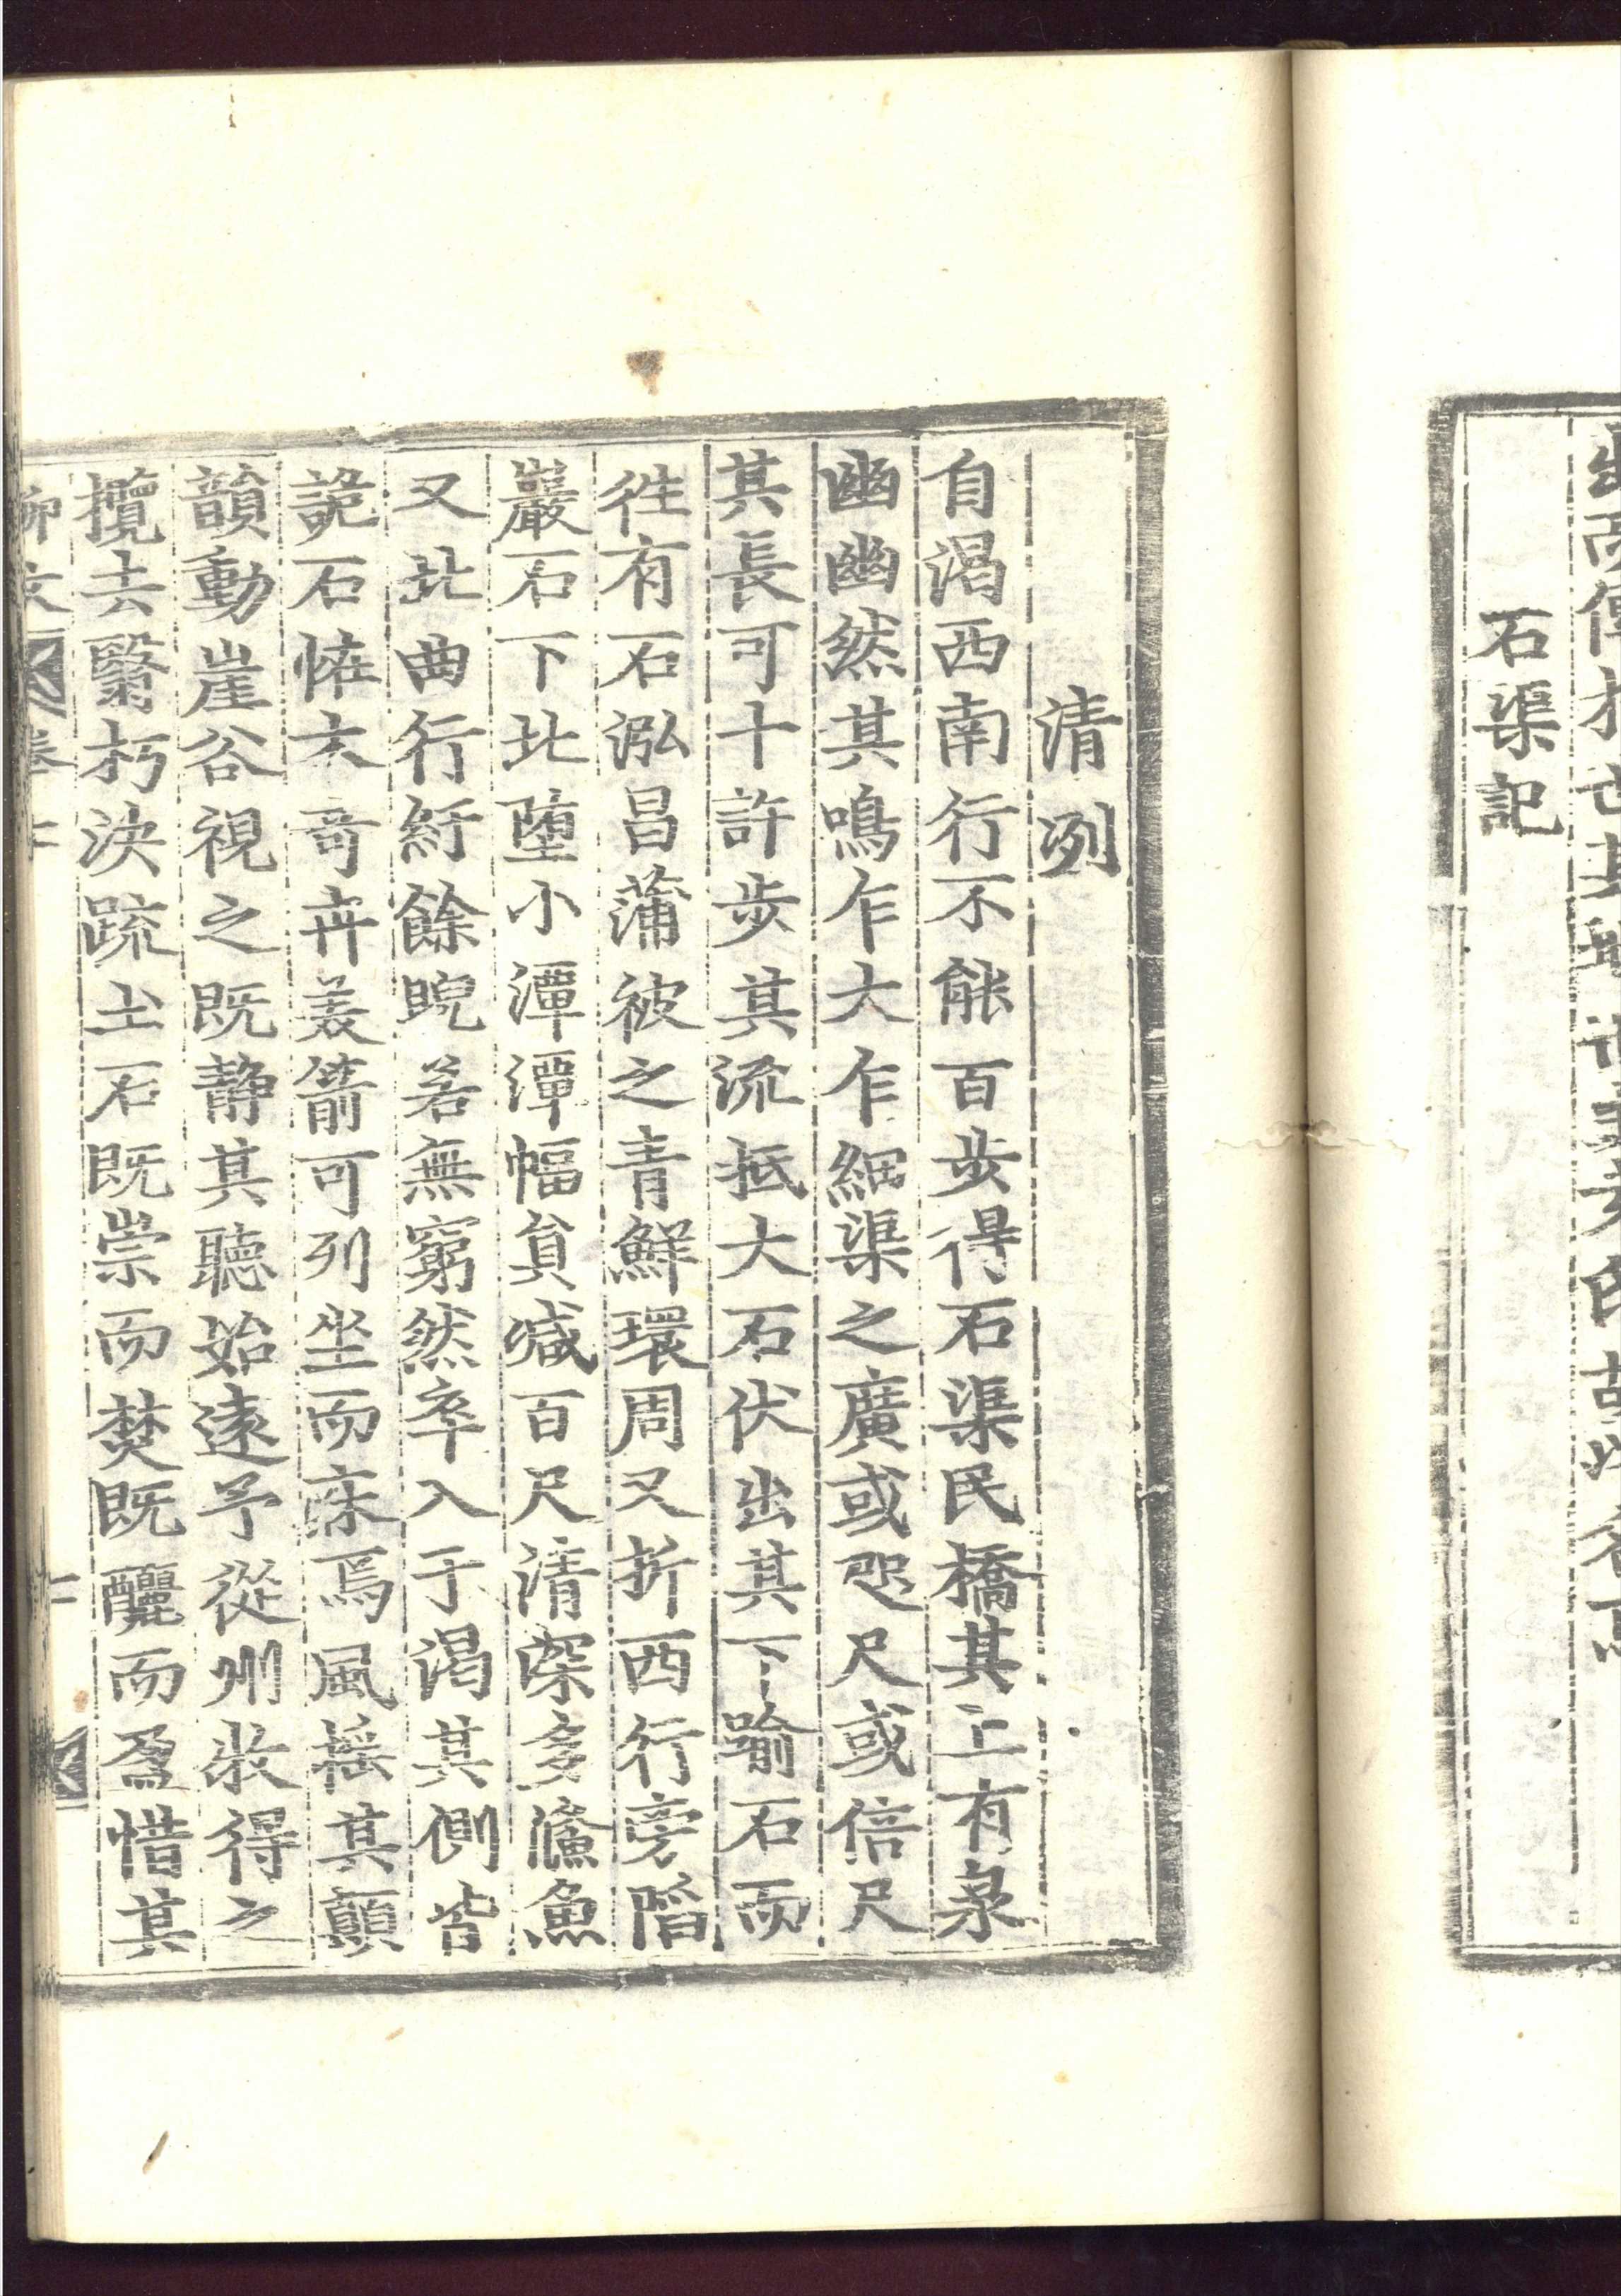 石渠記
清洌
自渴西南行不能百步得石渠民橋其上有泉
幽幽然其鳴乍大乍細渠之廣或咫尺或倍尺
其長可十許步其流抵大石伏出其下踰石而
徃有石泓昌蒲被之青鮮環周又折西行旁陷
巖石下北墮小潭潭幅貟减百尺清深多鯈魚
又北曲行紆餘睨若無窮然卒入于渴其側皆
詭石恠木竒卉美箭可列坐而庥焉風揺其顛
韻動崖谷視之既静其聽始逺予從州牧得之
攬去翳朽决疏土石既崇而焚既釃而盈惜其